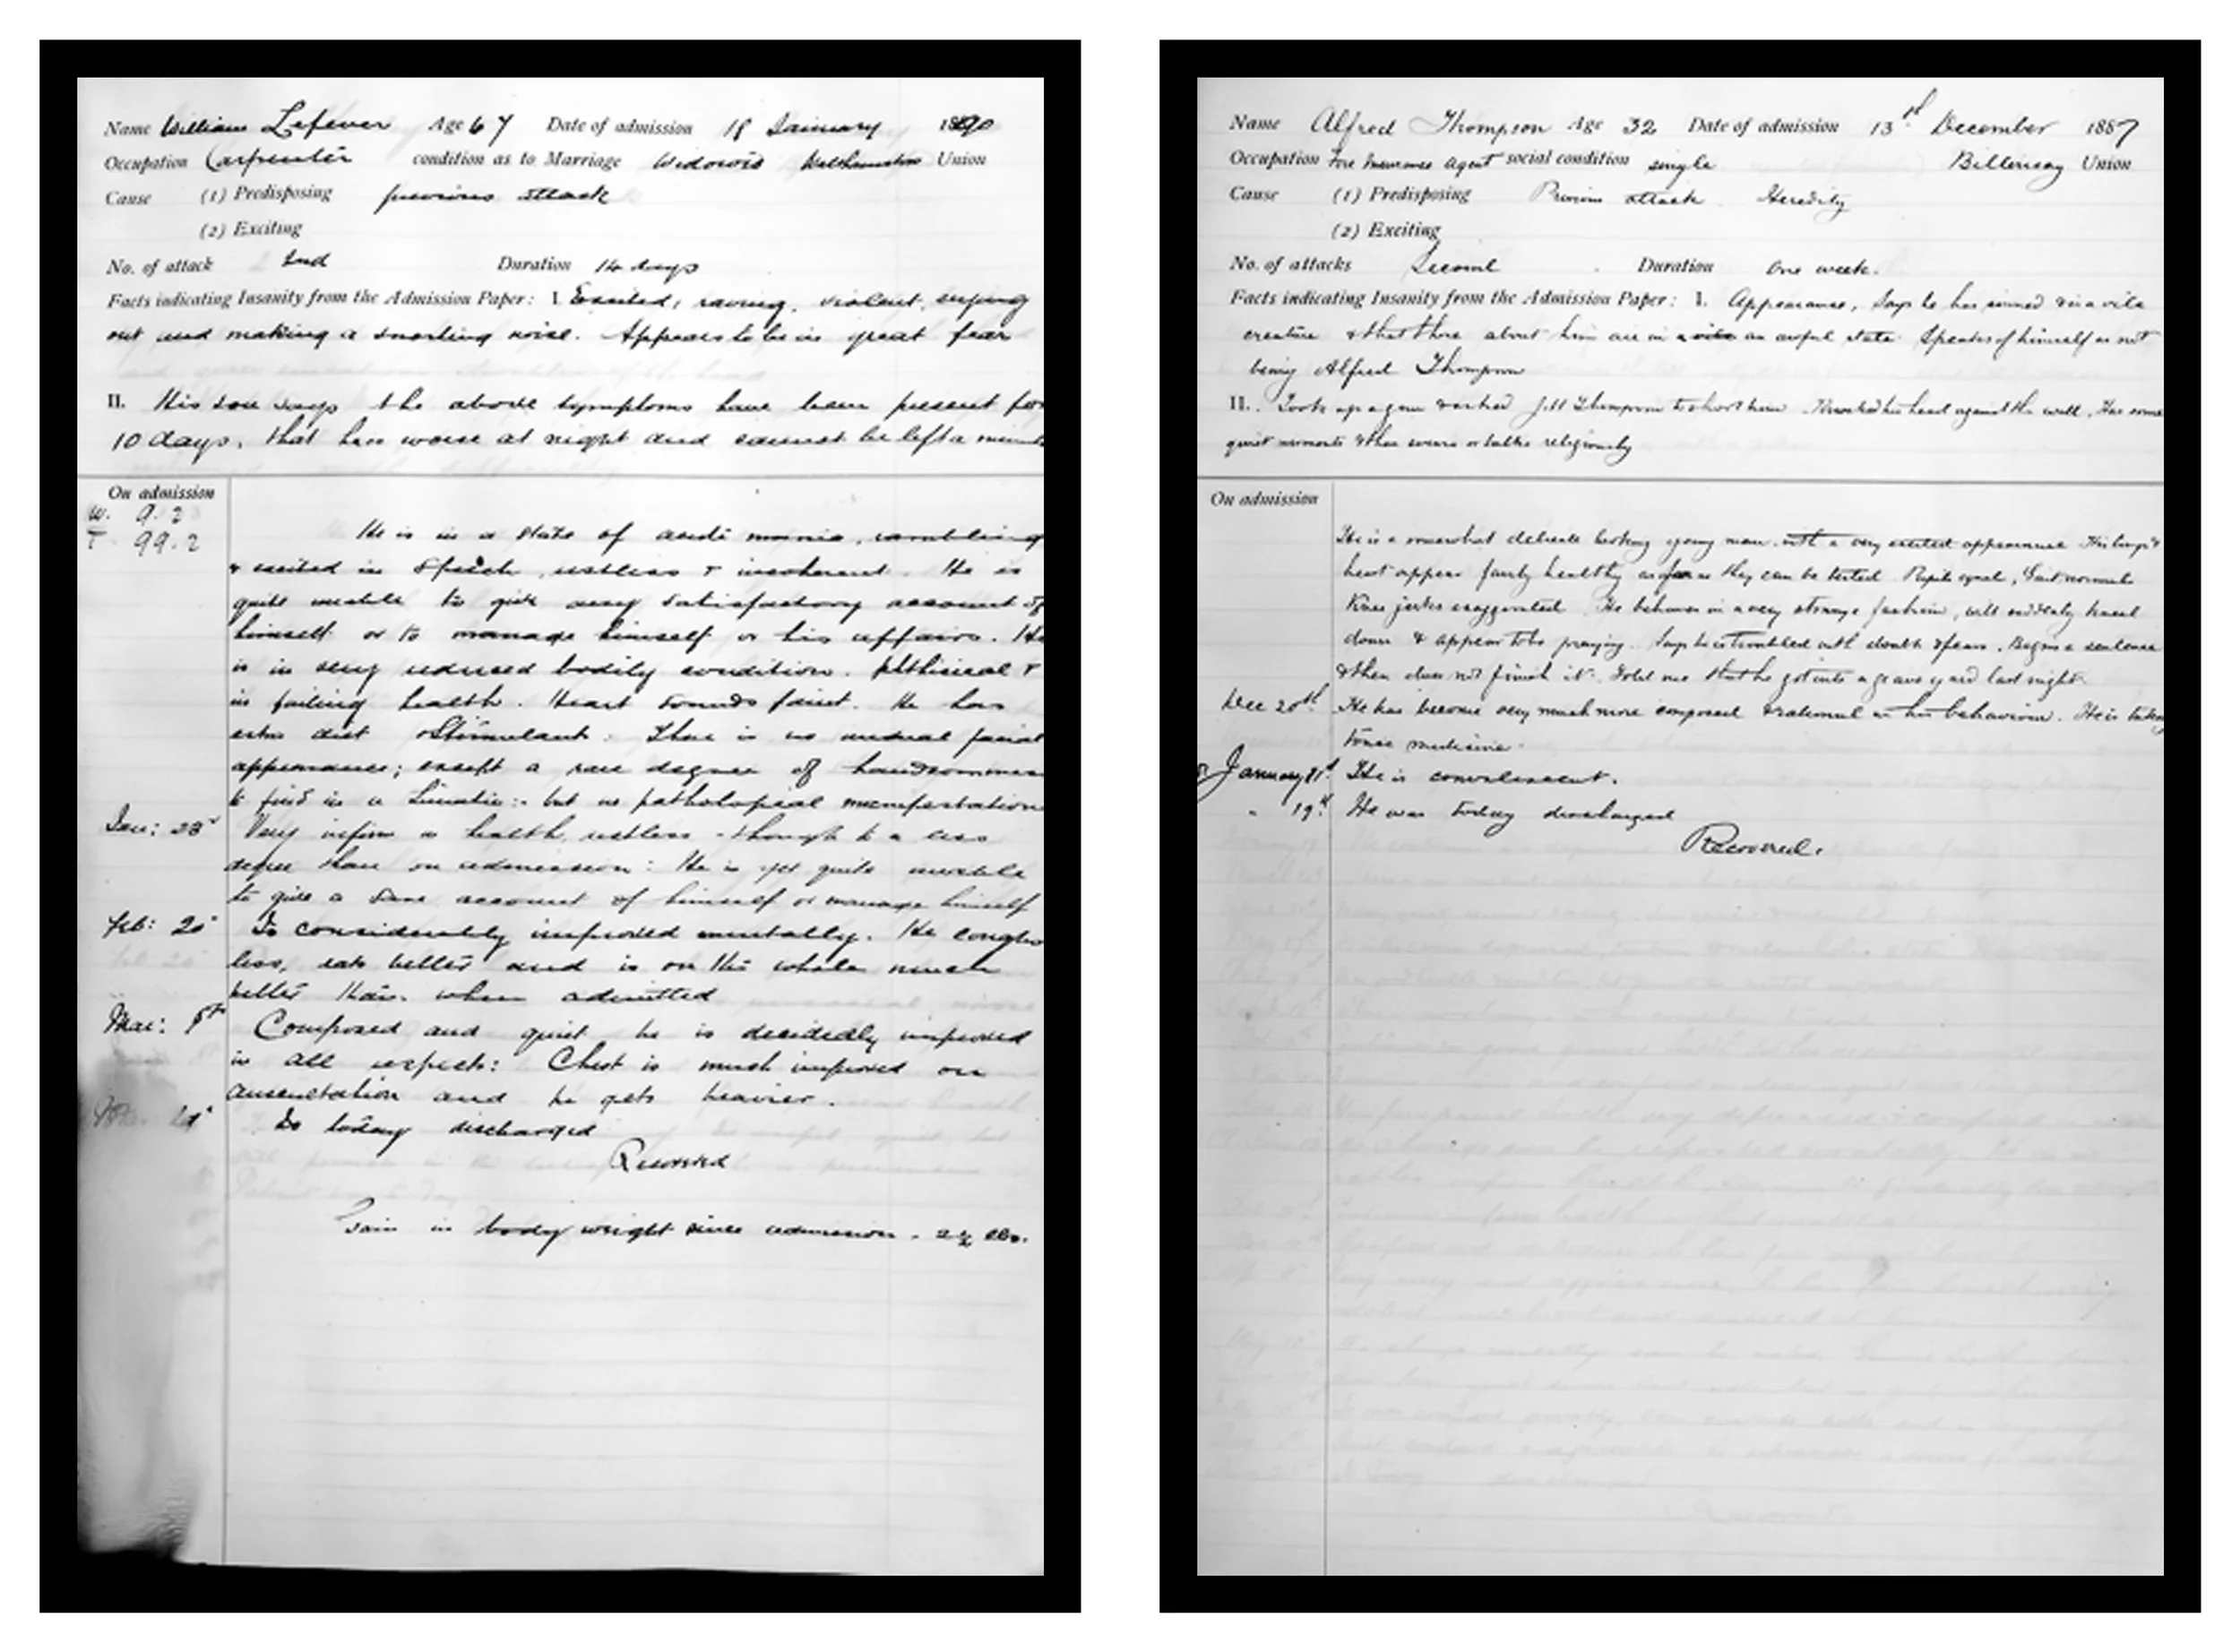 Name William Lefever Age 67 Date of admission 18 January 1890
Occupation Carpenter condition as to Marriage Widowed Walthamstow Union
Cause (1) Predisposing previous attack
(2) Exciting
No. of attack 2nd Duration 14 days
Facts indicating Insanity from the Admission Paper: I. Excited, raving, violent, singing
out and making a snorting noise. Appears to be in great fear
II. His son says the above symptoms have been present for
10 days, that he is worse at night and cannot be left a minute
On admission
W. 9. 2
T 99.2
He is in a state of acute mania, rambling
& excited in speech, restless & incoherent. He is
quite unable to give any satisfactory account of
himself or to manage himself or his affairs. He
is in very reduced bodily condition. phthisical &
in failing health. Heart sounds faint. He has
extra diet & Stimulant. There is no unusual facial
appearance; except a rare degree of handsomeness
to find in a Lunatic:- but no pathological manifestation
Jan: 28 Very infirm in health, restless - though to a less
degree than on admission: He is yet quite unable
to give a sane account of himself or manage himself
Feb: 20 Is considerably improved mentally. He coughs
less, eats better and is on the whole much
better than when admitted
Mar: 8th Composed and quiet he is decidedly improved
in all respects: Chest is much improved on
auscultation and he gets heavier.
Is today discharged
Recovered
Gain in body weight since admission - 2½ lbs.
Name Alfred Thompson Age 32 Date of admission 13 December 1887
Occupation Fire Insurance Agent social condition single Billericay Union
Cause (1) Predisposing Previous attack. Heredity
(2) Exciting
No. of attacks Second Duration One week.
Facts indicating Insanity from the Admission Paper: I. Appearance, Says he has sinned & is a vile
creature & that those about him are in a vile an awful state. Speaks of himself as not
being Alfred Thompson
II. Took up a gun & asked Thompson to shoot him. Knocked his head against the wall. Has some
quiet moments & then swears or talks religiously
On admission
He is a somewhat delicate looking young man with a very excited appearance His lungs &
heart appear fairly healthy as far as they can be tested Pupils equal, Gait normal
Knee jerks exaggerated He behaves in a very strange fashion, will suddenly kneel
down & appear to be praying. Says he is troubled with doubts & fears. Begins a sentence
& then does not finish it. Told me that he got into a grave yard last night.
Dec 20th He has become very much more composed & rational in his behaviour. He is taking
tonic medicine.
January He is convalescent.
" 19th He was today discharged
Recovered.